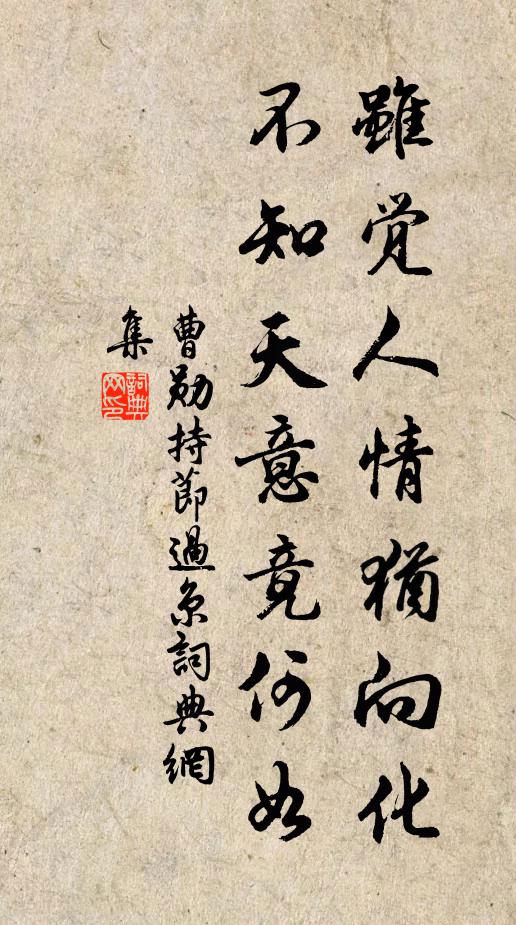 雖覺人情猶向化
不知天意竟何如
曹勛持節過京詞典網
集
詞典
網印